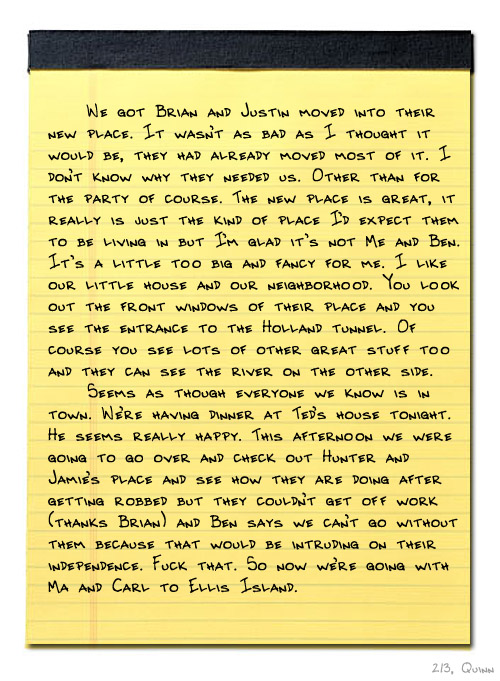 We got Brian and Justin moved into their
new place. It wasn't as bad as I thought it
would be, they had already moved most of it. I
don't know why they needed us. Other than for
the party of course. The new place is great, it
really is just the kind of place I'd expect them
to be living in but I'm glad it's not Me and Ben.
It's a little too big and fancy for me. I like
our little house and our neighborhood. You look
out the front windows of their place and you
see the entrance to the Holland Tunnel. Of
course you see lots of other great stuff too
and they can see the river on the other side.
Seems as though everyone we know is in
town. We're having dinner at Ted's house tonight.
He seems really happy. This afternoon we were
going to go over and check out Hunter and
Jamie's place and see how they are doing after
getting robbed but they couldn't get off work
(thanks Brian) and Ben says we can't go without
them because that would be intruding on their
independence. Fuck that. So now we're going with
Ma and Carl to Ellis Island.
213, Quinn